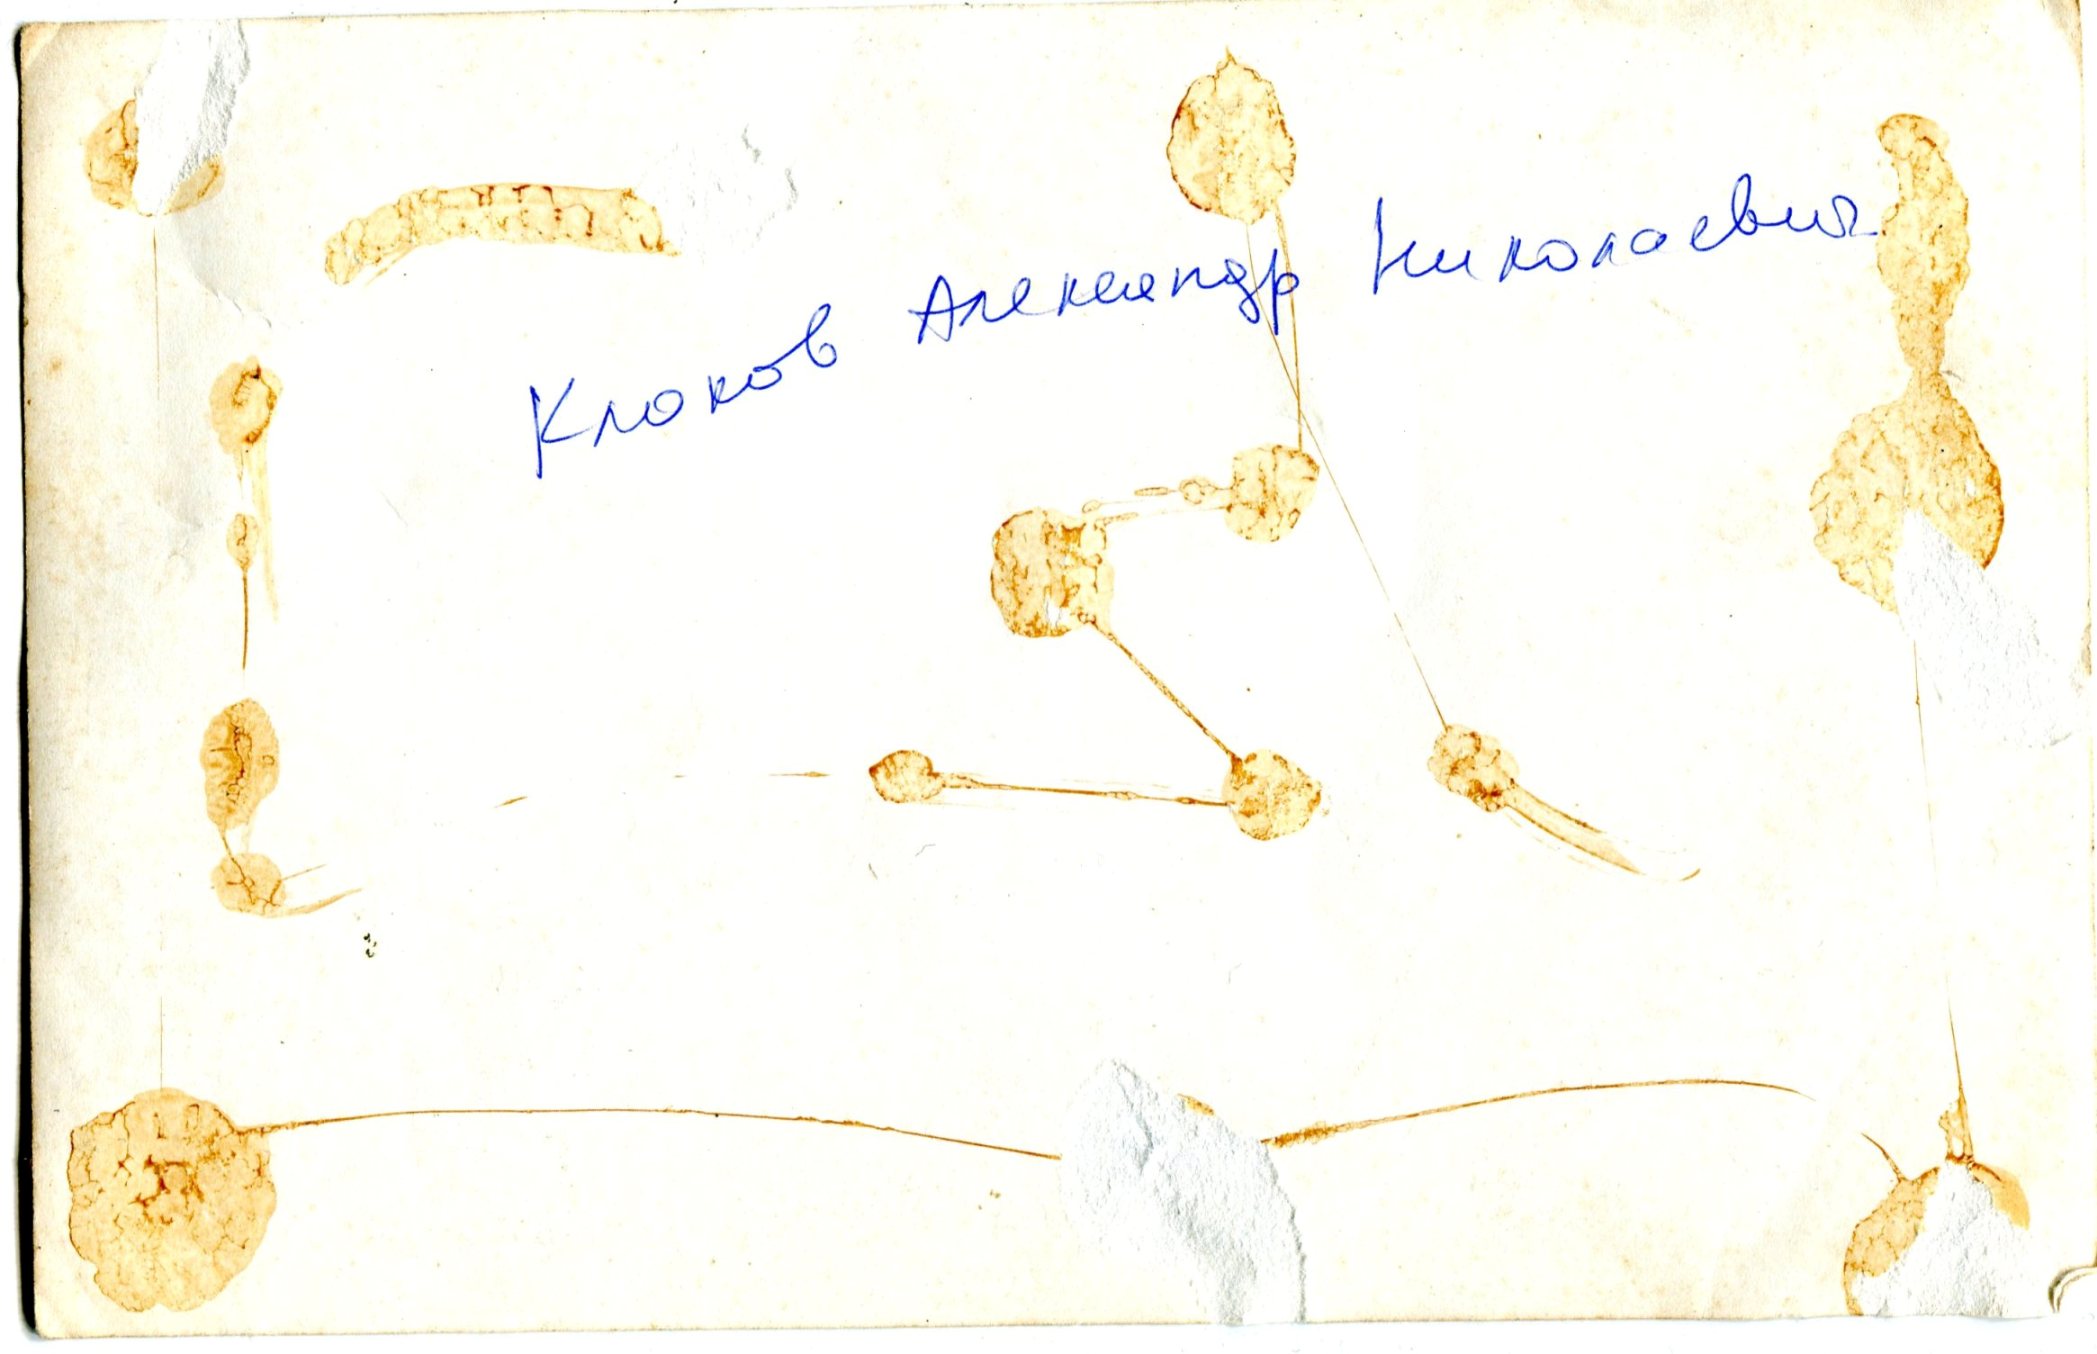 Клоков Александр Николаевич